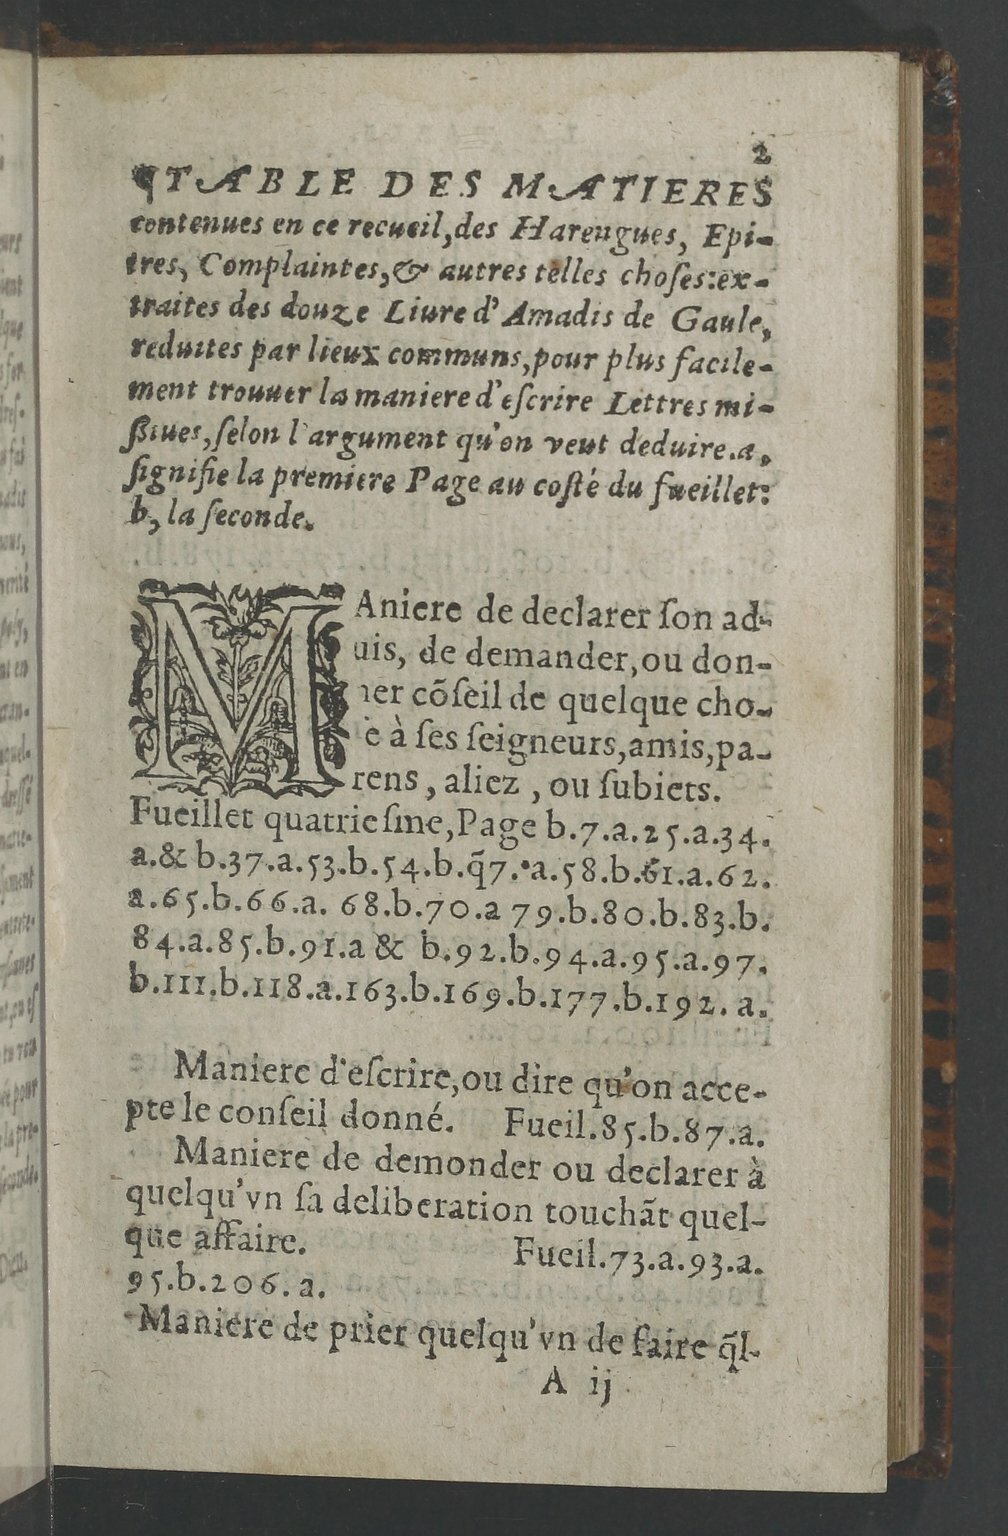 2
¶TABLE DES MATIERES
contenues en ce recueil, des Harengues, Epi-
tres, Complaintes, & autres telles choſes: ex-
traites des douze Liure d'Amadis de Gaule,
reduites par lieux communs, pour plus facile-
ment trouuer la maniere d'eſcrire Lettres mi-
ſsiues, ſelon l'argument qu'on veut deduire. a,
ſignifie la premiere Page au coſté du fueillet:
b, la ſeconde.
MAniere de declarer ſon ad-
uis, de demander, ou don-
ner cõſeil de quelque cho-
ſe à ſes ſeigneurs, amis, pa-
rens, aliez, ou ſubiets.
Fueillet quatrieſme, Page b.7.a.25.a.34.
a.& b.37.a.53.b.54.b.q̃7.a.58.b.61.a.62.
a.65.b.66.a. 68.b.70.a 79.b.80.b.83.b.
84.a.85.b.91.a & b.92.b.94.a.95.a.97.
b.111.b.118.a.163.b.169.b.177.b.192. a.
Maniere d'eſcrire, ou dire qu'on acce-
pte le conſeil donné. Fueil.85.b.87.a.
Maniere de demonder ou declarer à
quelqu'vn ſa deliberation touchãt quel-
que affaire. Fueil.73.a.93.a.
95.b.206.a.
Maniere de prier quelqu'vn de faire q̃l-
A ij